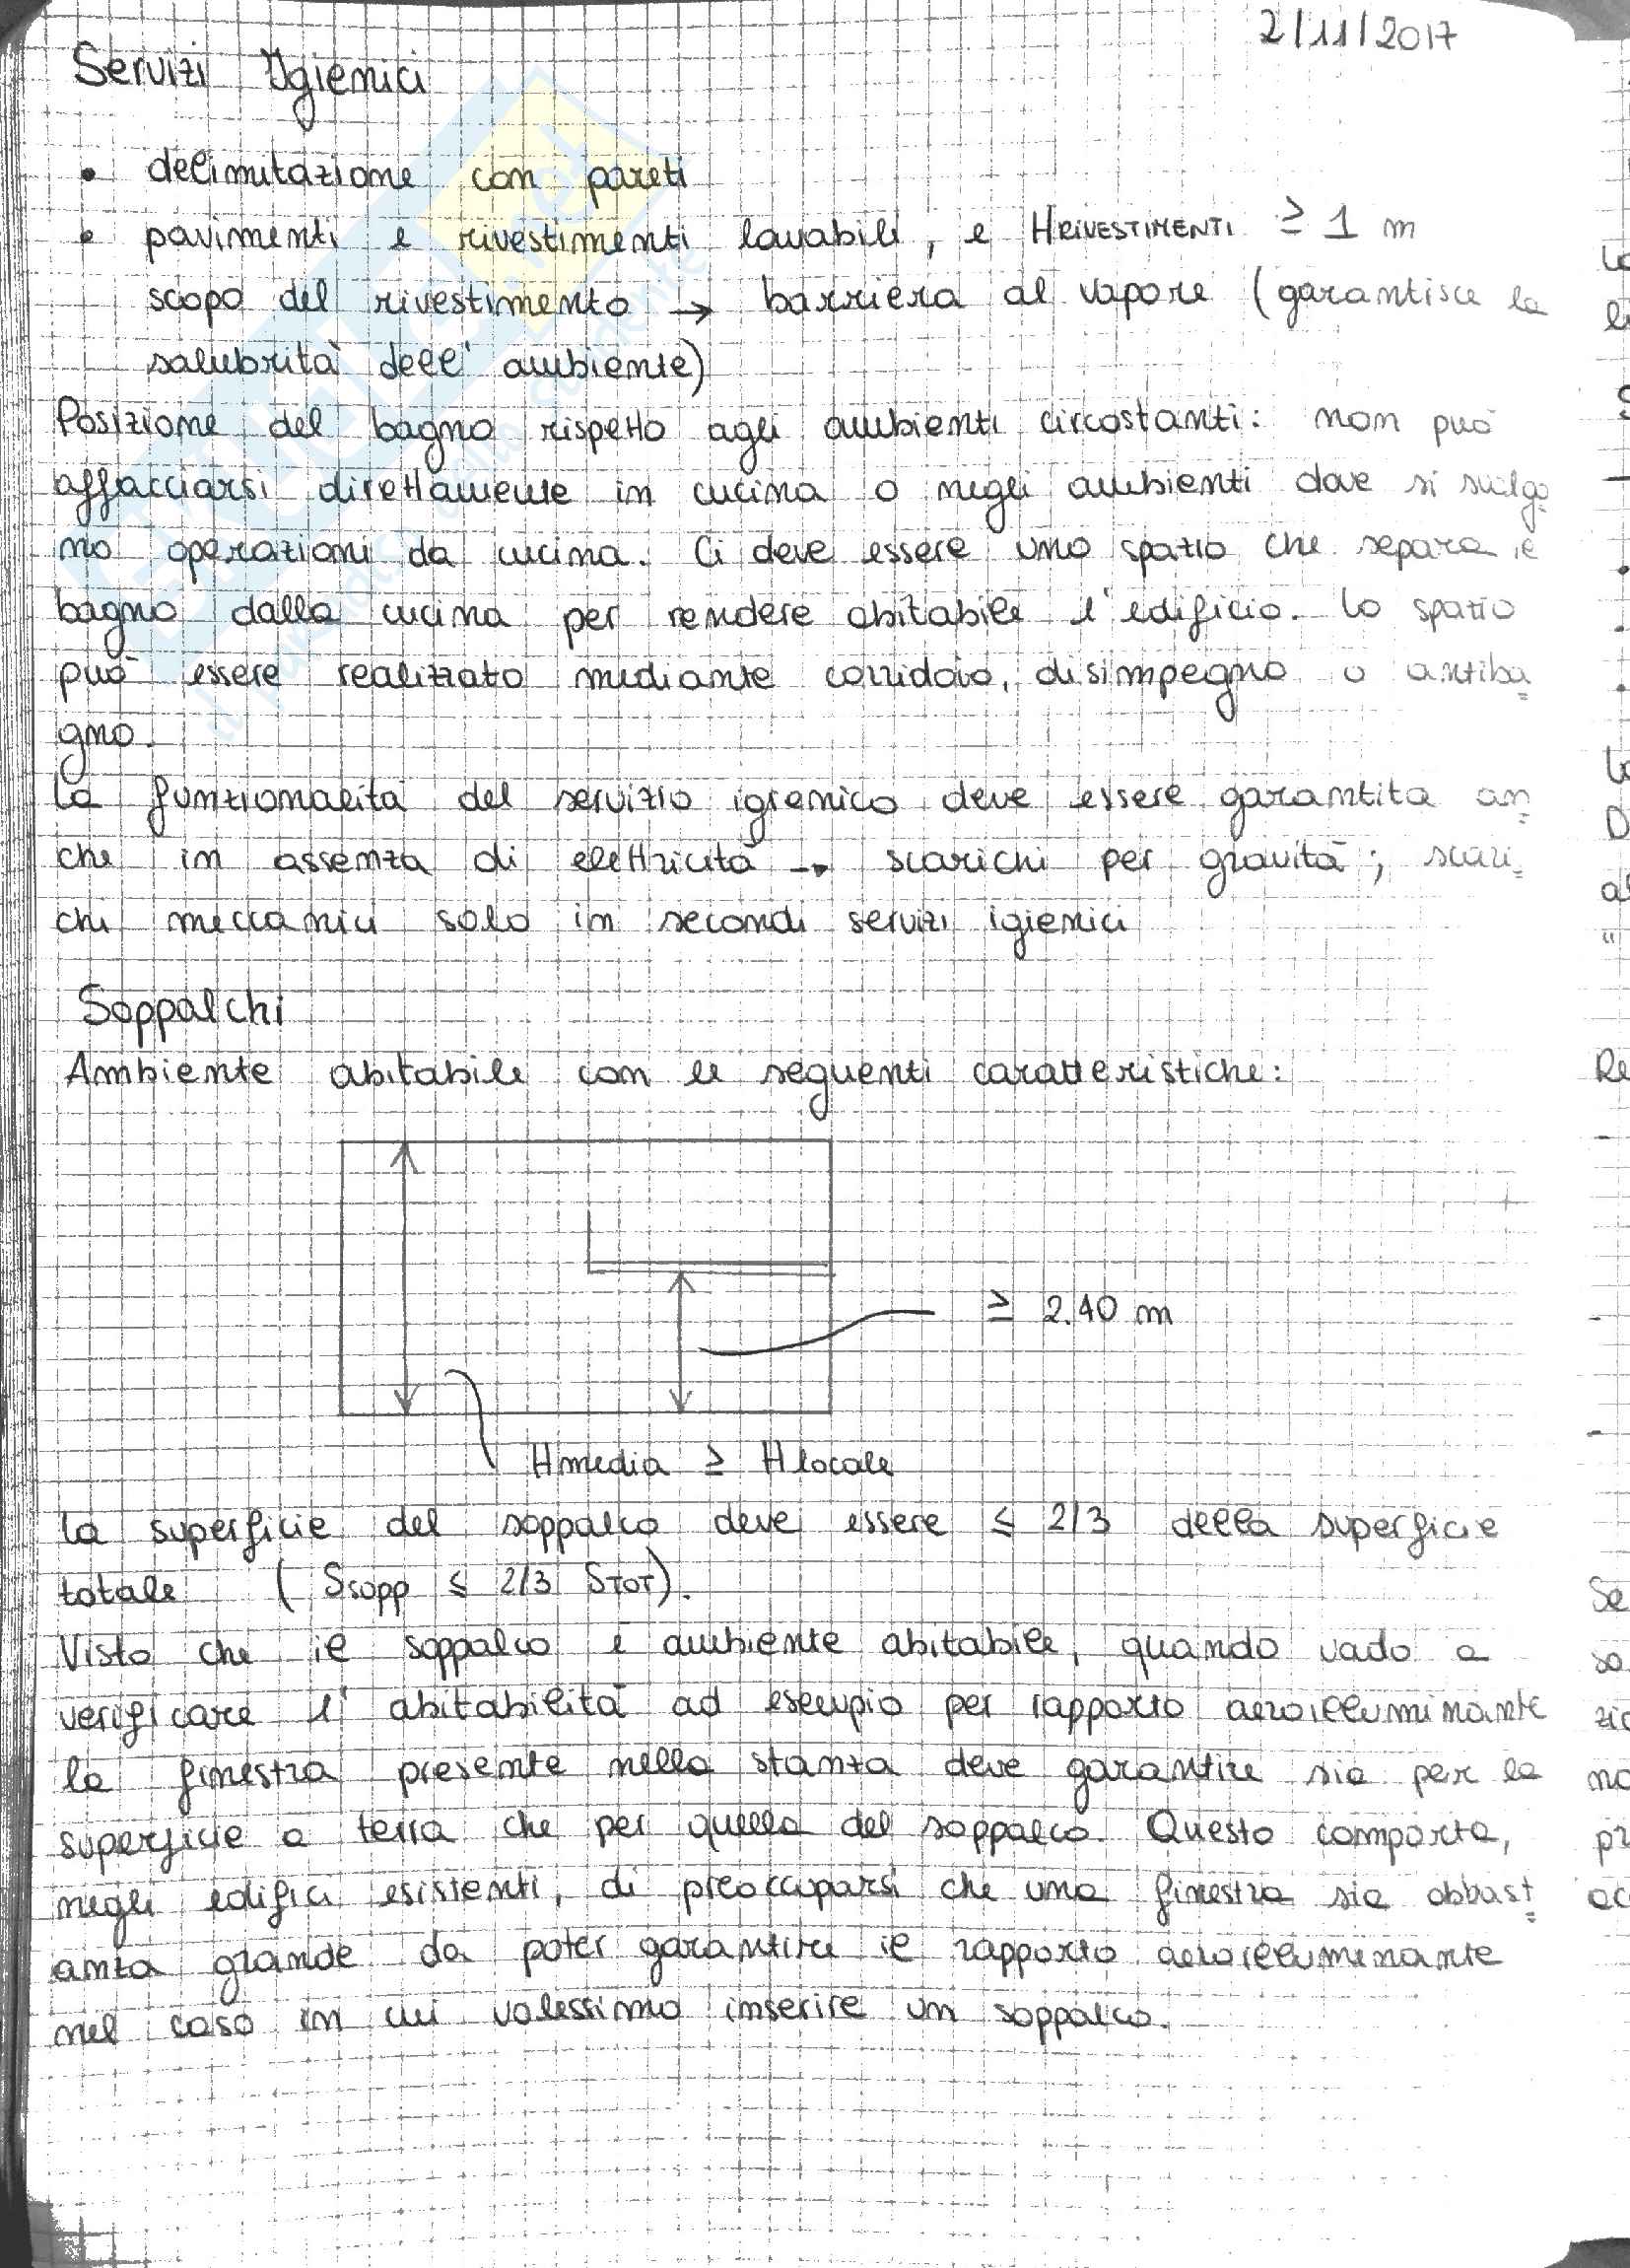 2/11/2017
Servizi Igienici
• delimitazione con pareti
• pavimenti e rivestimenti lavabili, e HRIVESTIMENTI ≥ 1 m
scopo del rivestimento → barriera al vapore (garantisce la
salubrità dell'ambiente)
Posizione del bagno rispetto agli ambienti circostanti: non può
affacciarsi direttamente in cucina o negli ambienti dove si svolgo
no operazioni da cucina. Ci deve essere uno spazio che separa il
bagno dalla cucina per rendere abitabile l'edificio. Lo spazio
può essere realizzato mediante corridoio, disimpegno o antiba
gno.
La funzionalità del servizio igienico deve essere garantita an
che in assenza di elettricità → scarichi per gravità; scari
chi meccanici solo in secondi servizi igienici
Soppalchi
Ambiente abitabile con le seguenti caratteristiche:
≥ 2.40 m
Hmedia ≥ Hlocale
La superficie del soppalco deve essere ≤ 2/3 della superficie
totale (Ssopp ≤ 2/3 STOT).
Visto che il soppalco è ambiente abitabile, quando vado a
verificare l'abitabilità ad esempio per rapporto aeroilluminante
la finestra presente nella stanza deve garantire sia per la
superficie a terra che per quella del soppalco. Questo comporta,
negli edifici esistenti, di preoccuparsi che una finestra sia abbast
anza grande da poter garantire il rapporto aeroilluminante
nel caso in cui volessimo inserire un soppalco.